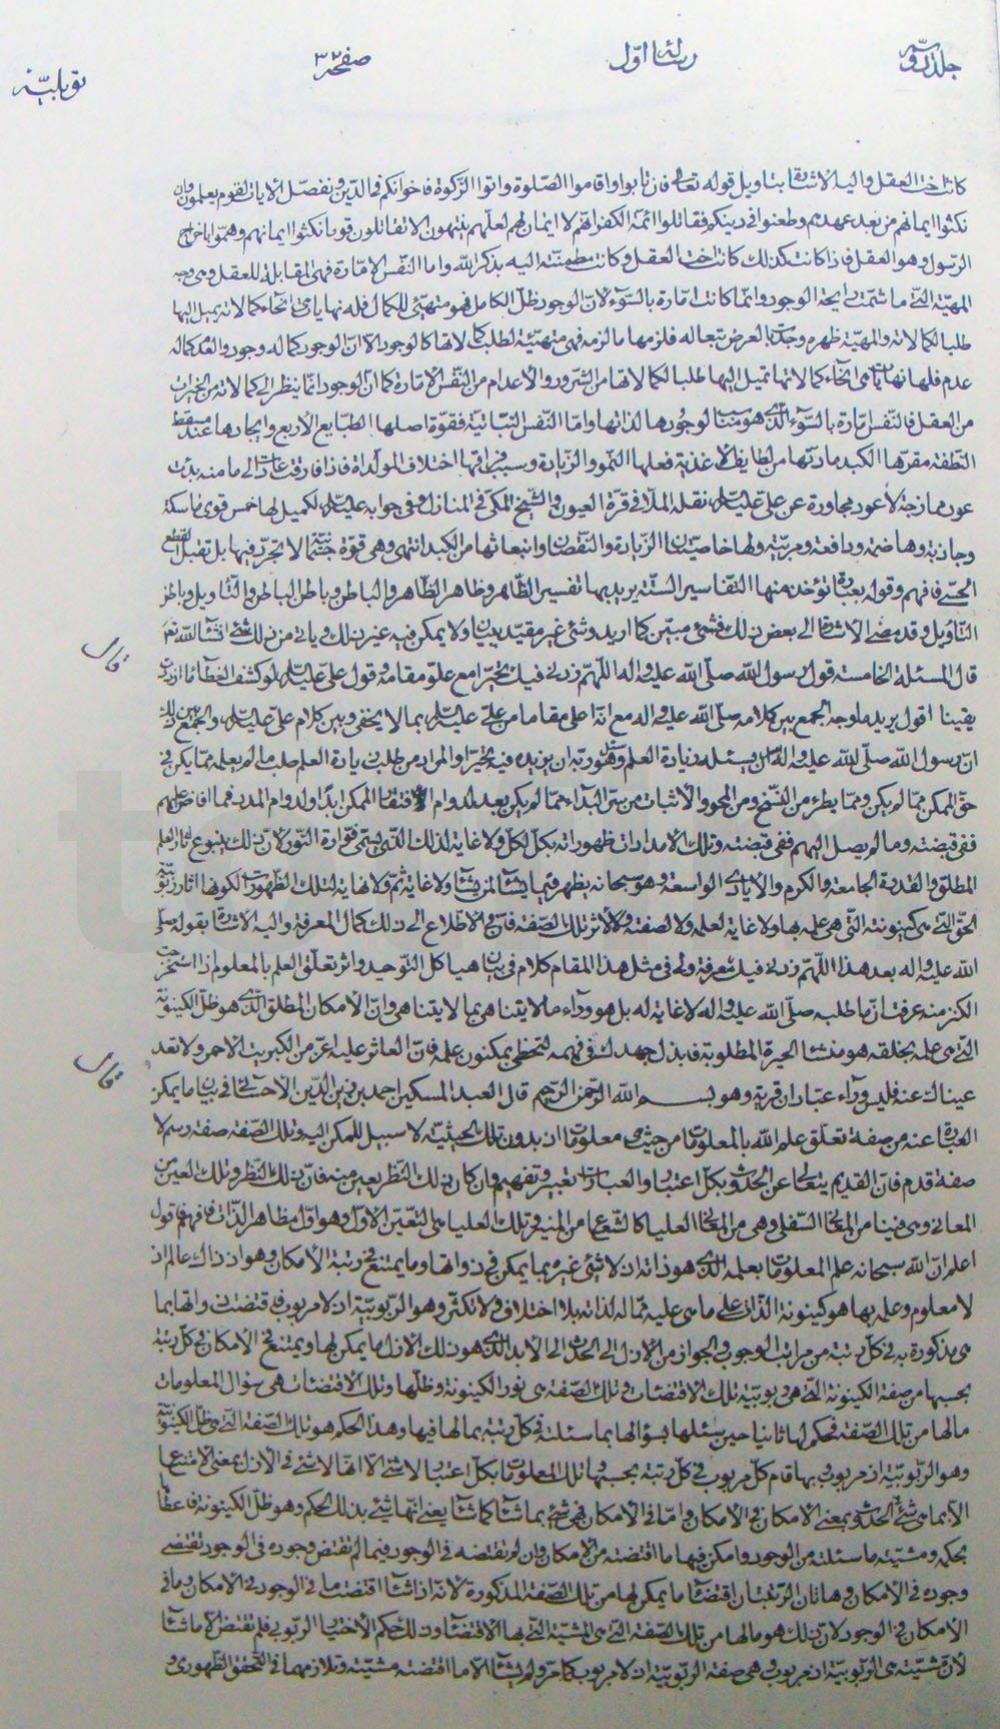 جلد دوم رسالة اول صفحه ٣٢ توبلية
كانت اخت العقل واليه الاشارة بتاويل قوله تعالى فان تابوا واقاموا الصلوة واتوا الزكوة فاخوانكم في الدين ونفصل الايات لقوم يعلمون وان
نكثوا ايمانهم من بعد عهدهم وطعنوا في دينكم فقاتلوا ائمة الكفر انهم لا ايمان لهم لعلهم ينتهون الا تقاتلون قوما نكثوا ايمانهم وهموا باخراج
الرسول وهو العقل فاذا كانت كذلك كانت اخت العقل وكانت مطمئنة اليه بذكر الله واما النفس الامارة فهي المقابلة للعقل وهي وجه
المهية التي ما شمت رايحة الوجود وانما كانت امارة بالسوء لان الوجود ظل الكامل فهو متهيئ للكمال فله نهايات في انحاء كمالاته يميل اليها
طلبا لكمالاته والمهية ظهره وجدت بالعرض تبعا له فلزمها ما لزمه فهي متهيئة لطلب كمالاتها كالوجود الا ان الوجود كماله وجود والعدم كماله
عدم فلها نهايات في انحاء كمالاتها تميل اليها طلبا لكمالاتها من الشرور والاعدام من النفس الامارة كما ان الوجود انما ينظر الى كمالاته من الخيرات
من العقل فالنفس امارة بالسوء الذي هو مناسب لوجودها لذاتها واما النفس النباتية فقوة اصلها الطبايع الاربع وايجادها عند مسقط
النطفة مقرها الكبد مادتها من لطايف الاغذية فعلها النمو والزيادة وسبب فراقها اختلاف المولدات فاذا فارقت عادت الى ما منه بدئت
عود ممازجة لا عود مجاورة عن علي عليه السلام نقله الملا في قرة العيون والشيخ المكي في المنازل وفي جوابه عليه السلام لكميل لها خمس قوى ماسكة
وجاذبة وهاضمة ودافعة ومربية ولها خاصيتان الزيادة والنقصان وانبعاثها من الكبد انتهى وهي قوة جسمانية لا تجرد فيها بل تقبل القطع
الحسي فافهم وقوله بعبارة تؤخذ منها التفاسير الستة يريد بها تفسير الظاهر وظاهر الظاهر والباطن وباطن الباطن والتاويل وباطن
التاويل وقد مضى الاشارة الى بعض ذلك فشئ مبين كما اريد وشئ غير مقيد ببيان ولا يمكن فيه غير ذلك وياتي من ذلك شئ انشاء الله تعالى
قال
قال المسئلة الخامسة قول رسول الله صلى الله عليه واله اللهم زدني فيك تحيرا مع علو مقامه وقول علي عليه السلام لو كشف الغطاء ما ازددت
يقينا اقول يريد ما وجه الجمع بين كلامه صلى الله عليه واله مع انه اعلى مقاما من علي عليه السلام بما لا يخفى وبين كلام علي عليه السلام والجمع بين ذلك
ان رسول الله صلى الله عليه واله يسئل زيادة العلم وهو ربه ان يزيده فيه تحيرا والمراد من طلب زيادة العلم طلب ما لم يعلمه مما يمكن في
حق الممكن مما لم يكن ومما يطرء من النسخ ومن المحو والاثبات من سر البداء مما لم يكن بعد لدوام افتقار الممكن ابدا ولدوام المدد فما افاض عليهم
ففي قبضته وما لم يصل اليهم ففي قبضته وتلك الامدادات ظهوراته بكل لكل ولا غاية لذلك الذي يسمى فوارة النور لان ذلك ينبوع اثار العلم
المطلق والقدرة الجامعة والكرم والايادي الواسعة وهو سبحانه يظهر فيما يشاء لمن يشاء ولا غاية ثم ولا نهاية لتلك الظهورات لكونها اثار ربوبية
الحق التي هي كينونته التي هي علمه بها ولا غاية لعلمه ولا لصفته ولا لاثر تلك الصفة فانى الاطلاع الى ذلك كمال المعرفة واليه الاشارة بقوله صلى
الله عليه واله بعد هذا اللهم زدني فيك معرفة ولي في مثل هذا المقام كلام في بيان هياكل التوحيد واثر تعلق العلم بالمعلوم اذا استخرجت
الكنز منه عرفت ان ما طلبه صلى الله عليه واله لا غاية له بل هو وراء ما لا يتناهى بما لا يتناهى وان الامكان المطلق الذي هو ظل الكينونة
التي هي علمه بخلقه هو منشأ الحيرة المطلوبة فابذل جهدك في فهمه لتحظى بمكنون علمه فان العاثر عليه اعز من الكبريت الاحمر ولا تعد
قال
عيناك عنه فليس وراء عبادان قرية وهو بسم الله الرحمن الرحيم قال العبد المسكين احمد بن زين الدين الاحسائي في بيان ما يمكن
العبارة عنه من صفة تعلق علم الله بالمعلومات من حيث هي معلومات اذ بدون تلك الحيثية لا سبيل للممكن اليه وتلك الصفة صفة رسم لا
صفة قدم فان القديم يتعالى عن الحدوث بكل اعتبار والعبارات تعبير وتفهيم وان كان ذلك النظر بعين منه فان ذلك النظر وتلك العين من
المعاني وهي فينا من المعاني السفلى وهي من المعاني العليا كالشعاع من المنير وتلك العليا هي التعين الاول وهو اول مظاهر الذات فافهم فاقول
اعلم ان الله سبحانه علم المعلومات بعلمه الذي هو ذاته اذ لا شئ غيره بما يمكن في ذواتها وما يمتنع في رتبة الامكان وهو اذ ذاك عالم اذ
لا معلوم وعلمه بها هو كينونة الذات على ما هي عليه مما له لذاته بلا اختلاف ولا تكثر وهو الربوبية اذ لا مربوب فاقتضت ذواتها بما
هي مذكورة به في كل رتبة من مراتب الوجوب والجواز من الازل الى الحدوث الى الابد الذي هو ذلك الازل ما يمكن لها ويمتنع في الامكان في كل رتبة
بحسبها من صفة الكينونة التي هي ربوبية تلك الاقتضاءات وتلك الصفة هي نور الكينونة وظلها وتلك الاقتضاءات هي سؤال المعلومات
ما لها من تلك الصفة فحكم لها ثانيا حين سئلها بسؤالها بما سئلته في كل رتبة بما لها فيها وهذا الحكم هو تلك الصفة التي هي ظل الكينونة
وهو الربوبية اذ مربوب بها قام كل مربوب في كل رتبة بحسبه فتلك المعلومات بكل اعتبار لا شئ الا انها لا شئ في الازل بمعنى الامتناع
الا بما هي شئ في الحدوث بمعنى الامكان في الامكان واما في الامكان فهي شئ بما شاء كما شاء يعني انها شئ بذلك الحكم وهو ظل الكينونة فاعطاها
بحكمه ومشيته ما سئلته من الوجود وامكن فيها ما اقتضته من الامكان وان لم تقتضه في الوجود فيما لم تقتض وجوده في الوجود تقتضي
وجوده في الامكان وهاتان الرتبتان اقتضتا ما يمكن لها من تلك الصفة المذكورة لانه اذا شاء اقتضت ما في الوجود في الامكان وما في
الامكان في الوجود لان ذلك هو ما لها من تلك الصفة التي هي المشية التي بها الاقتضاء وذلك حكم الاختيار الربوبي فلم تقتض الا ما شاء
لان مشيته هي الربوبية اذ مربوب وهي صفة الربوبية اذ لا مربوب كما مر ولم يشأ الا ما اقتضته مشيته وتلازمهما في التحقق الظهوري و